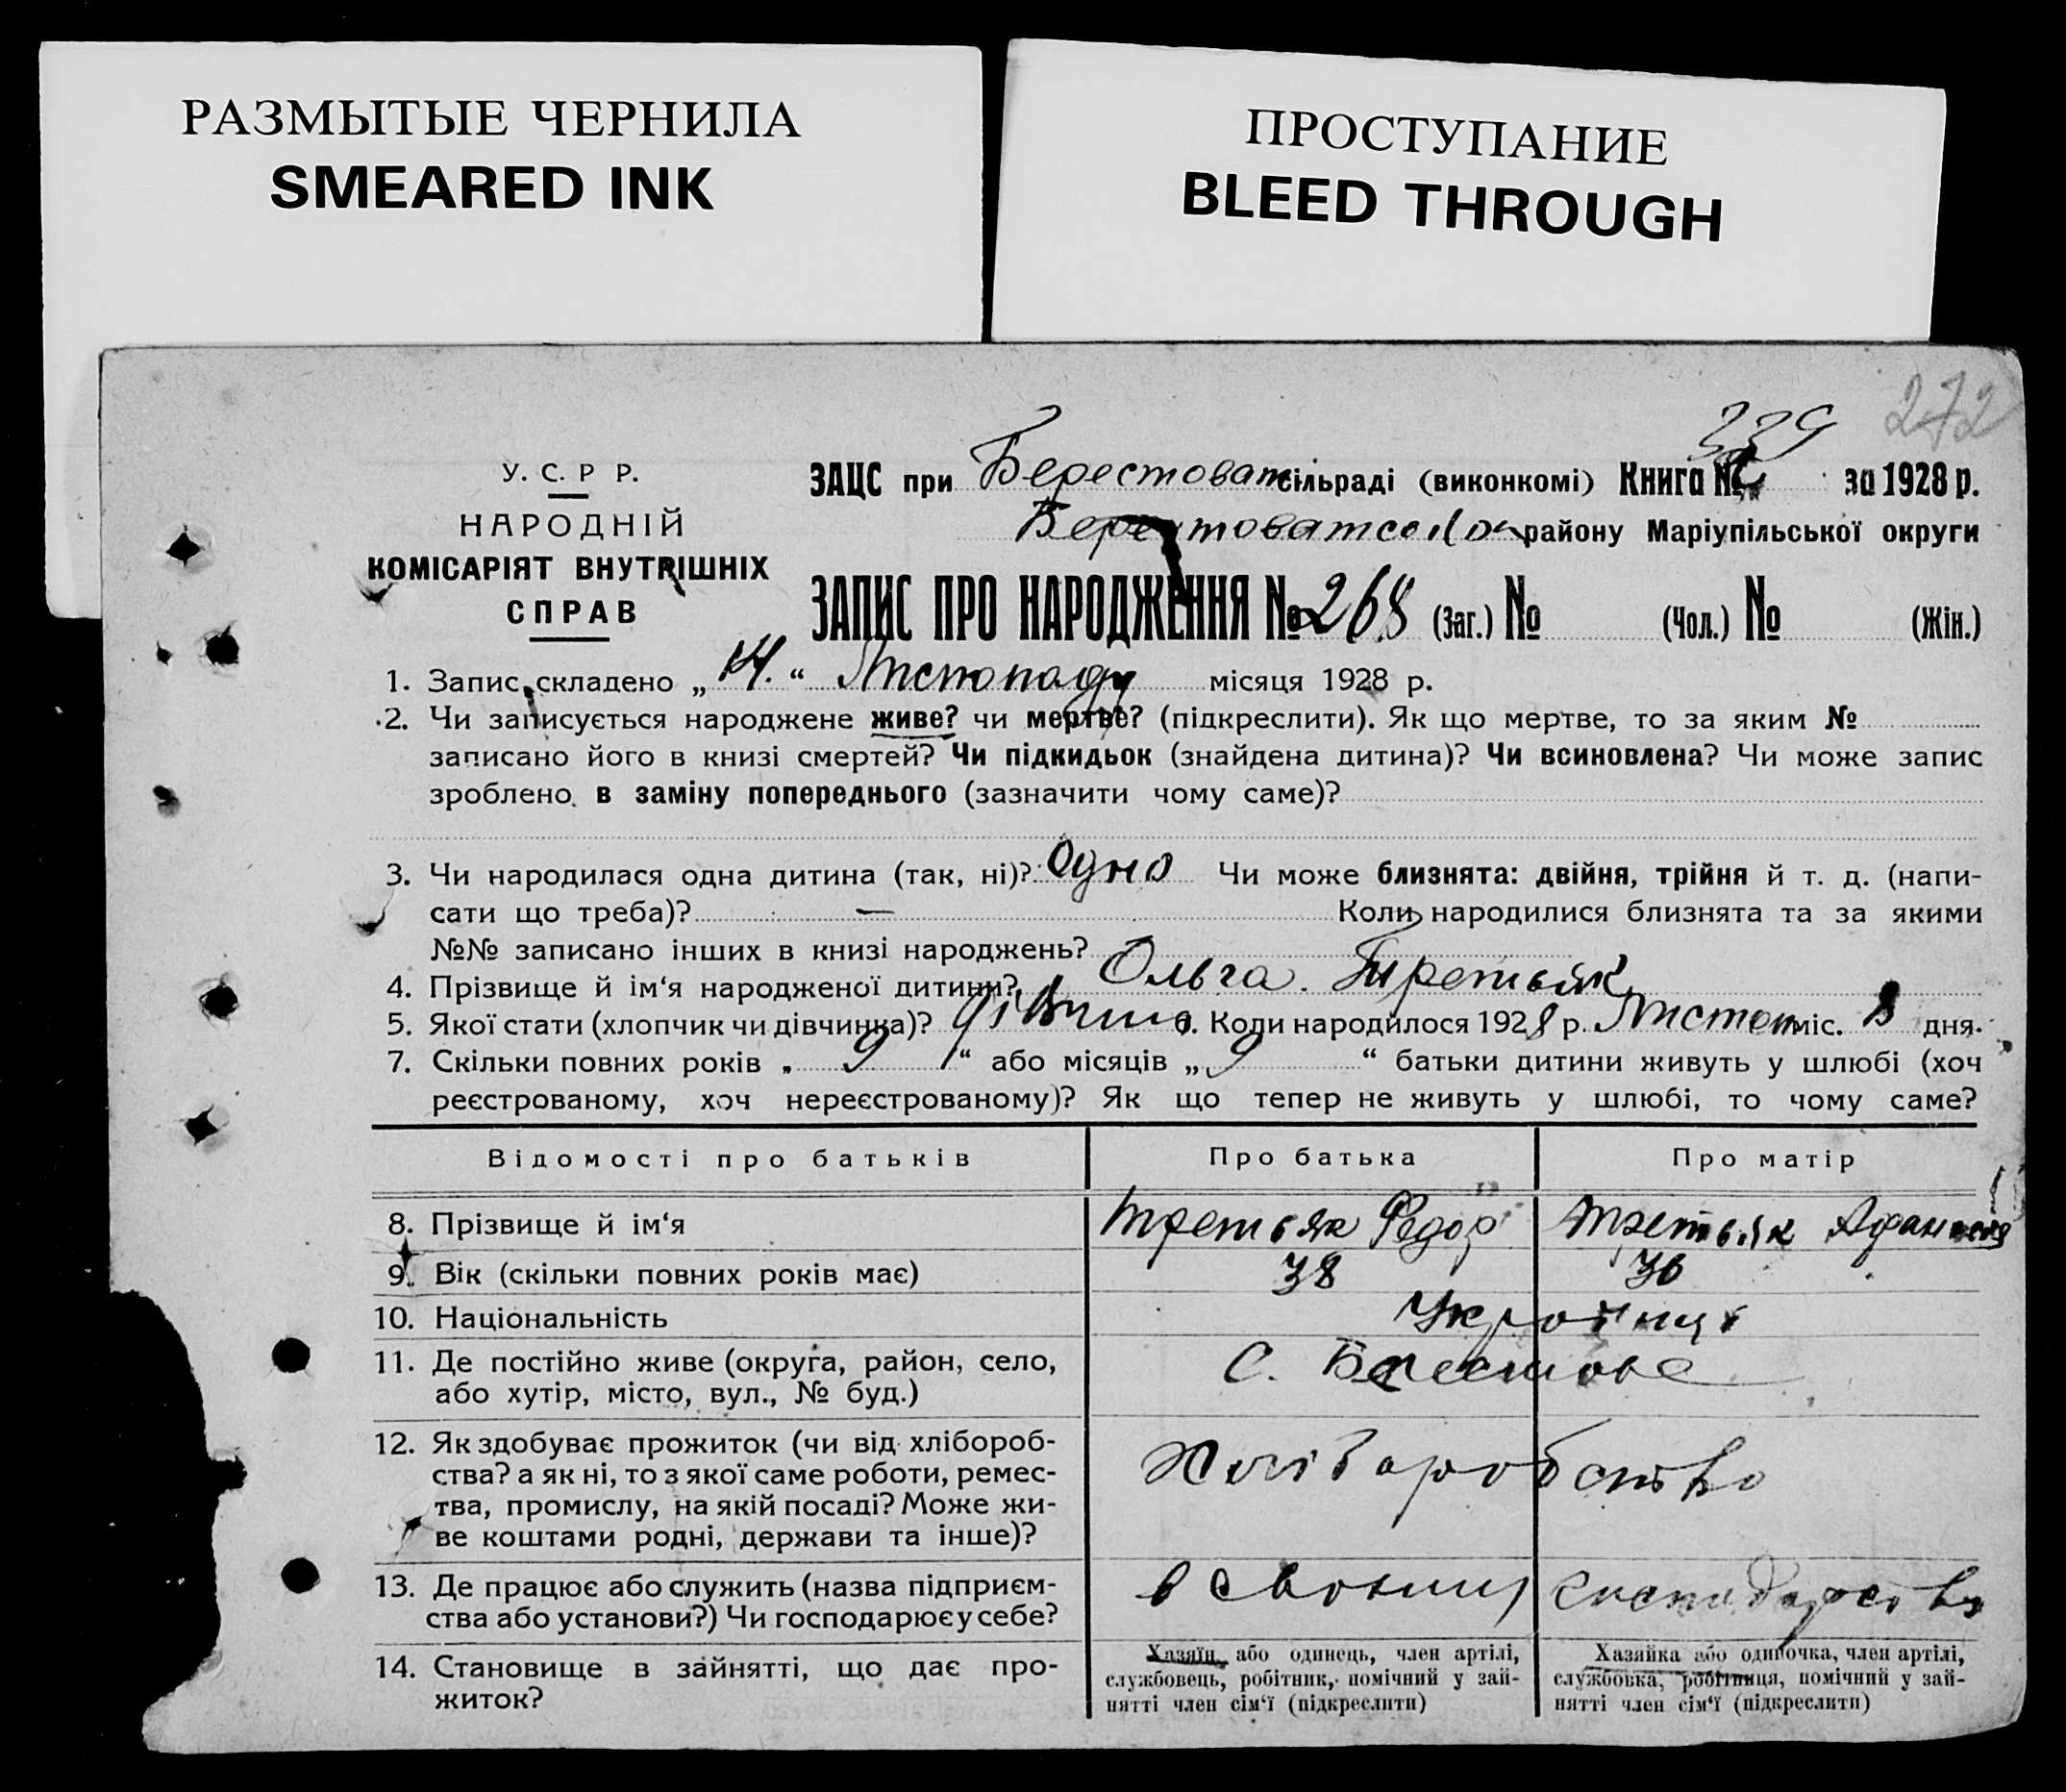 РАЗМЫТЫЕ ЧЕРНИЛА
SMEARED INK
ПРОСТУПАНИЕ
BLEED THROUGH
272
339
У. С. Р Р.
НАРОДНІЙ
КОМІСАРІЯТ ВНУТРІШНІХ
СПРАВ
ЗАЦС при Берестоват сільраді (виконкомі) Книга № за 1928 р.
району Маріупільської округи
ЗАПИС ПРО НАРОДЖЕННЯ № 268 (Заг.) № (Чол.) № (Жін.)
1. Запис складено „ 14. “ Листопаду місяця 1928 р.
2. Чи записується народжене живе? чи мертве? (підкреслити). Як що мертве, то за яким №
записано його в книзі смертей? Чи підкидьок (знайдена дитина)? Чи всиновлена? Чи може запис
зроблено в заміну попереднього (зазначити чому саме)?
3. Чи народилася одна дитина (так, ні)? Одно Чи може близнята: двійня, трійня й т. д. (напи-
сати що треба)? — Коли народилися близнята та за якими
№№ записано інших в книзі народжень?
4. Прізвище й ім‘я народженої дитини? Ольга. Третьяк
5. Якої стати (хлопчик чи дівчинка)? Коли народилося 1928 р. Листоп міс. 8 дня.
7. Скільки повних років „ 9 “ або місяців „ 9 “ батьки дитини живуть у шлюбі (хоч
реєстрованому, хоч нереєстрованому)? Як що тепер не живуть у шлюбі, то чому саме?
Відомості про батьків Про батька Про матір
8. Прізвище й ім‘я Третьяк Федор Третьяк
9. Вік (скільки повних років має) 38 36
10. Національність Українці
11. Де постійно живе (округа, район, село, С. Берестове
або хутір, місто, вул., № буд.)
12. Як здобуває прожиток (чи від хлібороб-
ства? а як ні, то з якої саме роботи, ремес- Хліборобство
тва, промислу, на якій посаді? Може жи-
ве коштами родні, держави та інше)?
13. Де працює або служить (назва підприєм- в своему господарстві
ства або установи?) Чи господарює у себе?
14. Становище в зайнятті, що дає про-
житок?
Хазяїн або одинець, член артілі,
службовець, робітник, помічний у зай-
нятті член сім‘ї (підкреслити)
Хазяйка або одиночка, член артілі,
службовка, робітниця, помічний у зай-
нятті член сім‘ї (підкреслити)